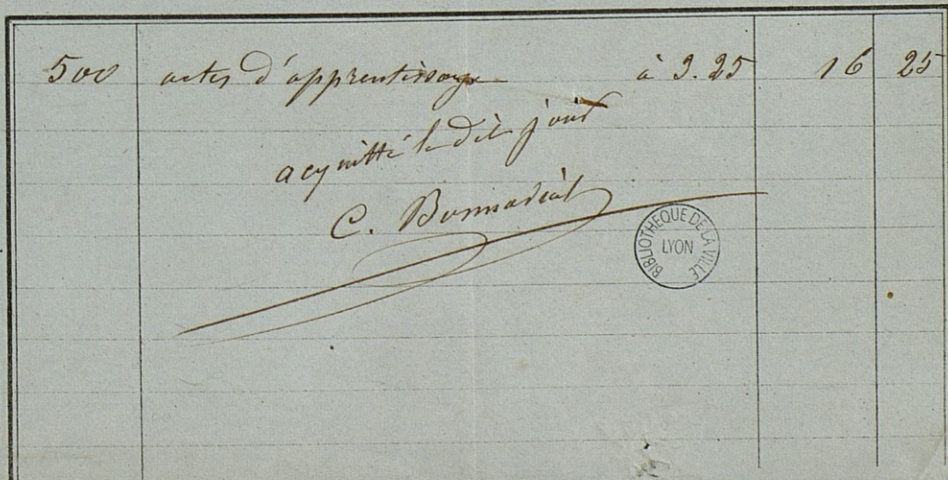 500 actes d'apprentissage à 3.25 16 25
acquitté le dit jour
C. Bonnaviat
BIBLIOTHEQUE DE LA VILLE
LYON